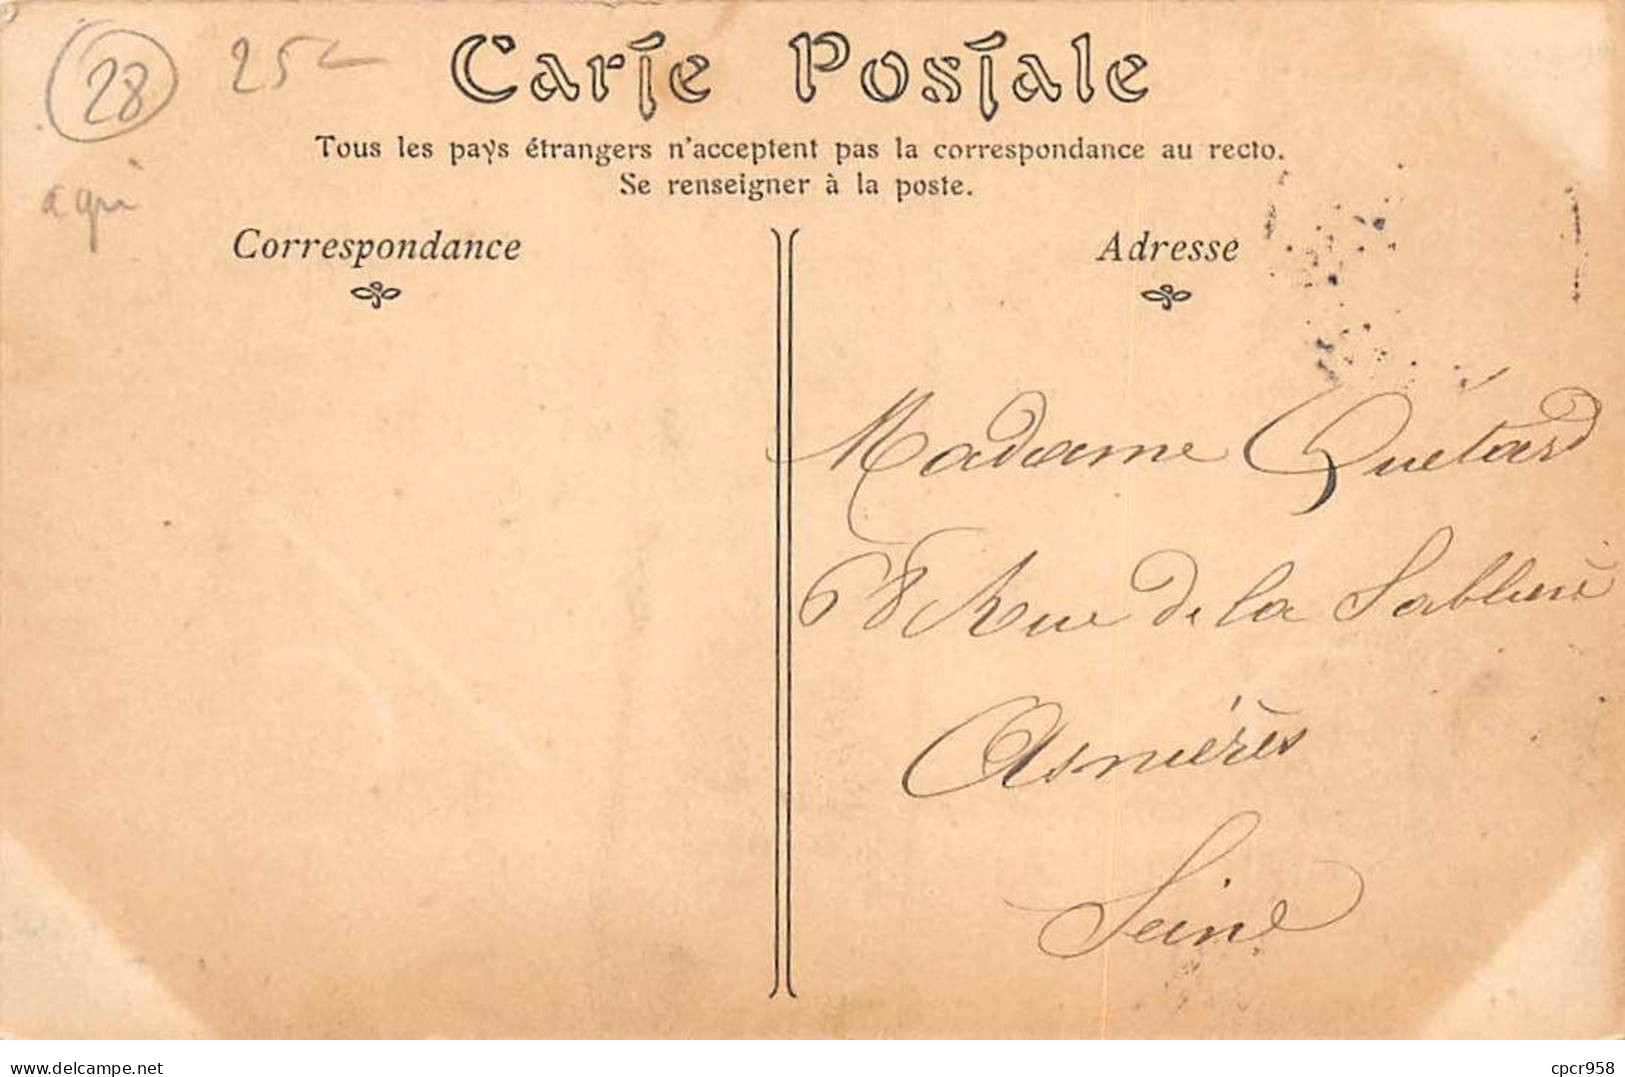 28 25
agri
Carte Postale
Tous les pays étrangers n'acceptent pas la correspondance au recto.
Se renseigner à la poste.
Correspondance
Adresse
Madame Quétard
68 Rue de la Sablière
Asnières
Seine
delcampe.net
cpcr958